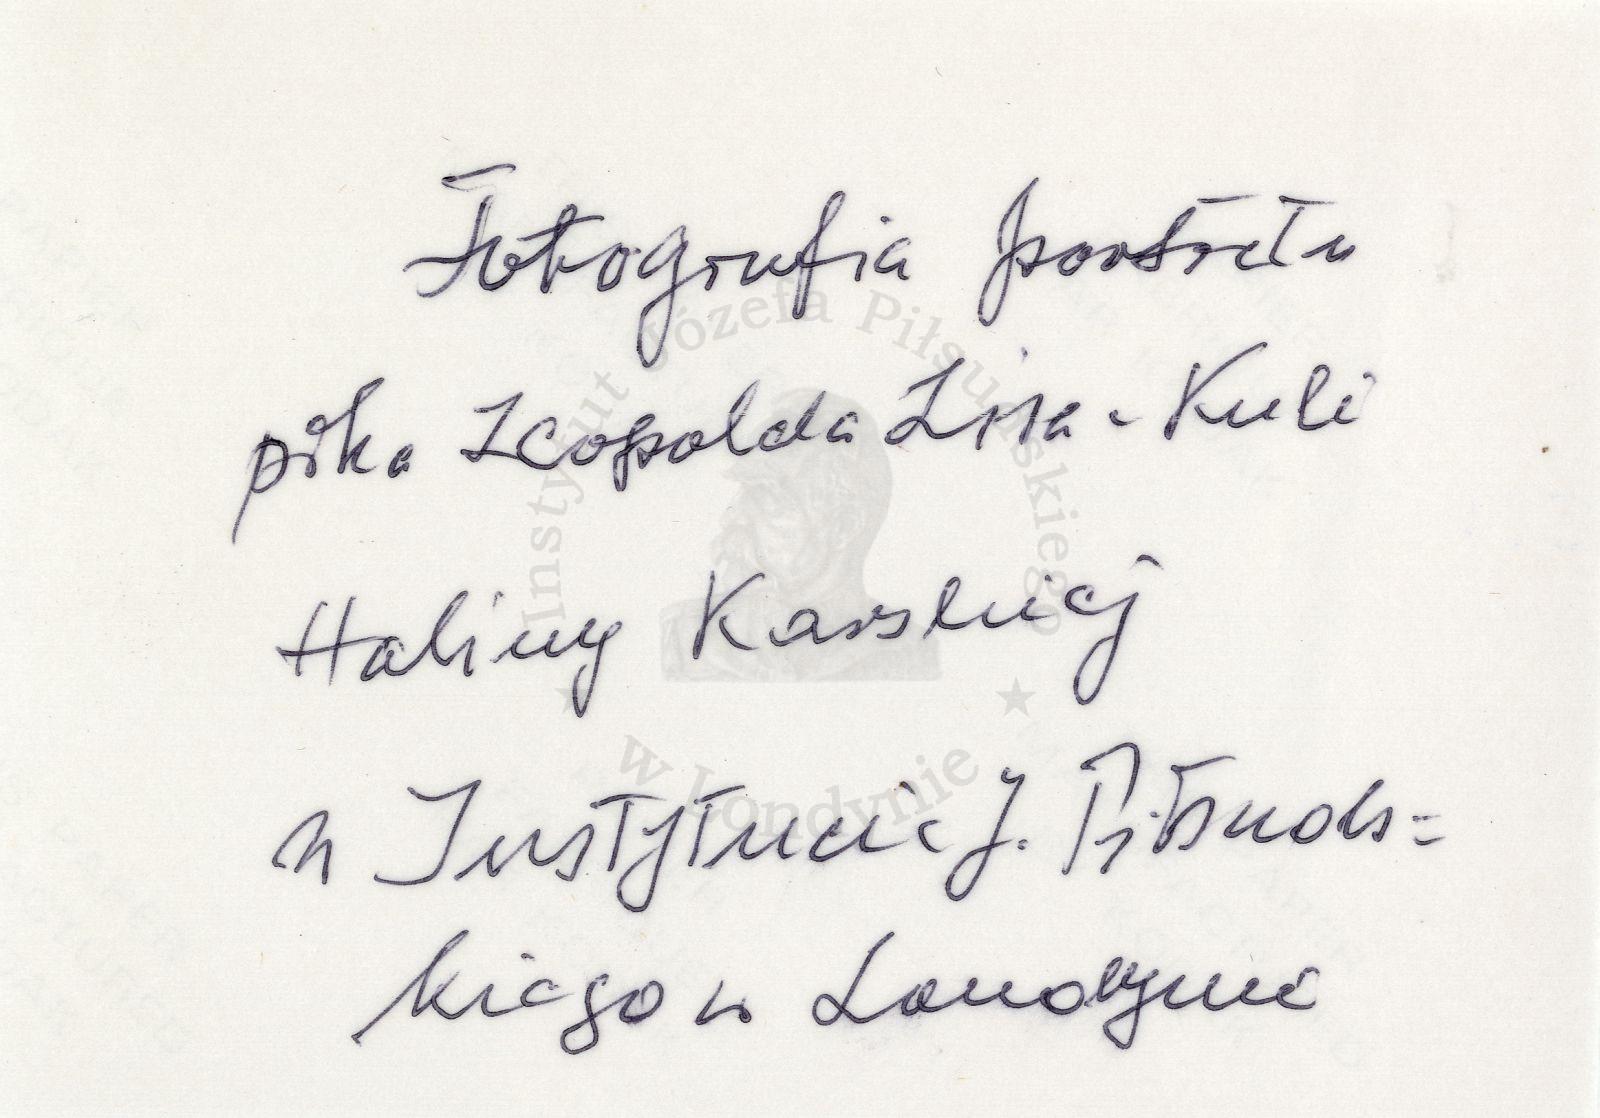 Fotografia portretu
płka Leopolda Lisa-Kuli
Haliny Karslicej
w Instytucie J. Piłsuds=
kiego w Londynie
Instytut Józefa Piłsudskiego
w Londynie